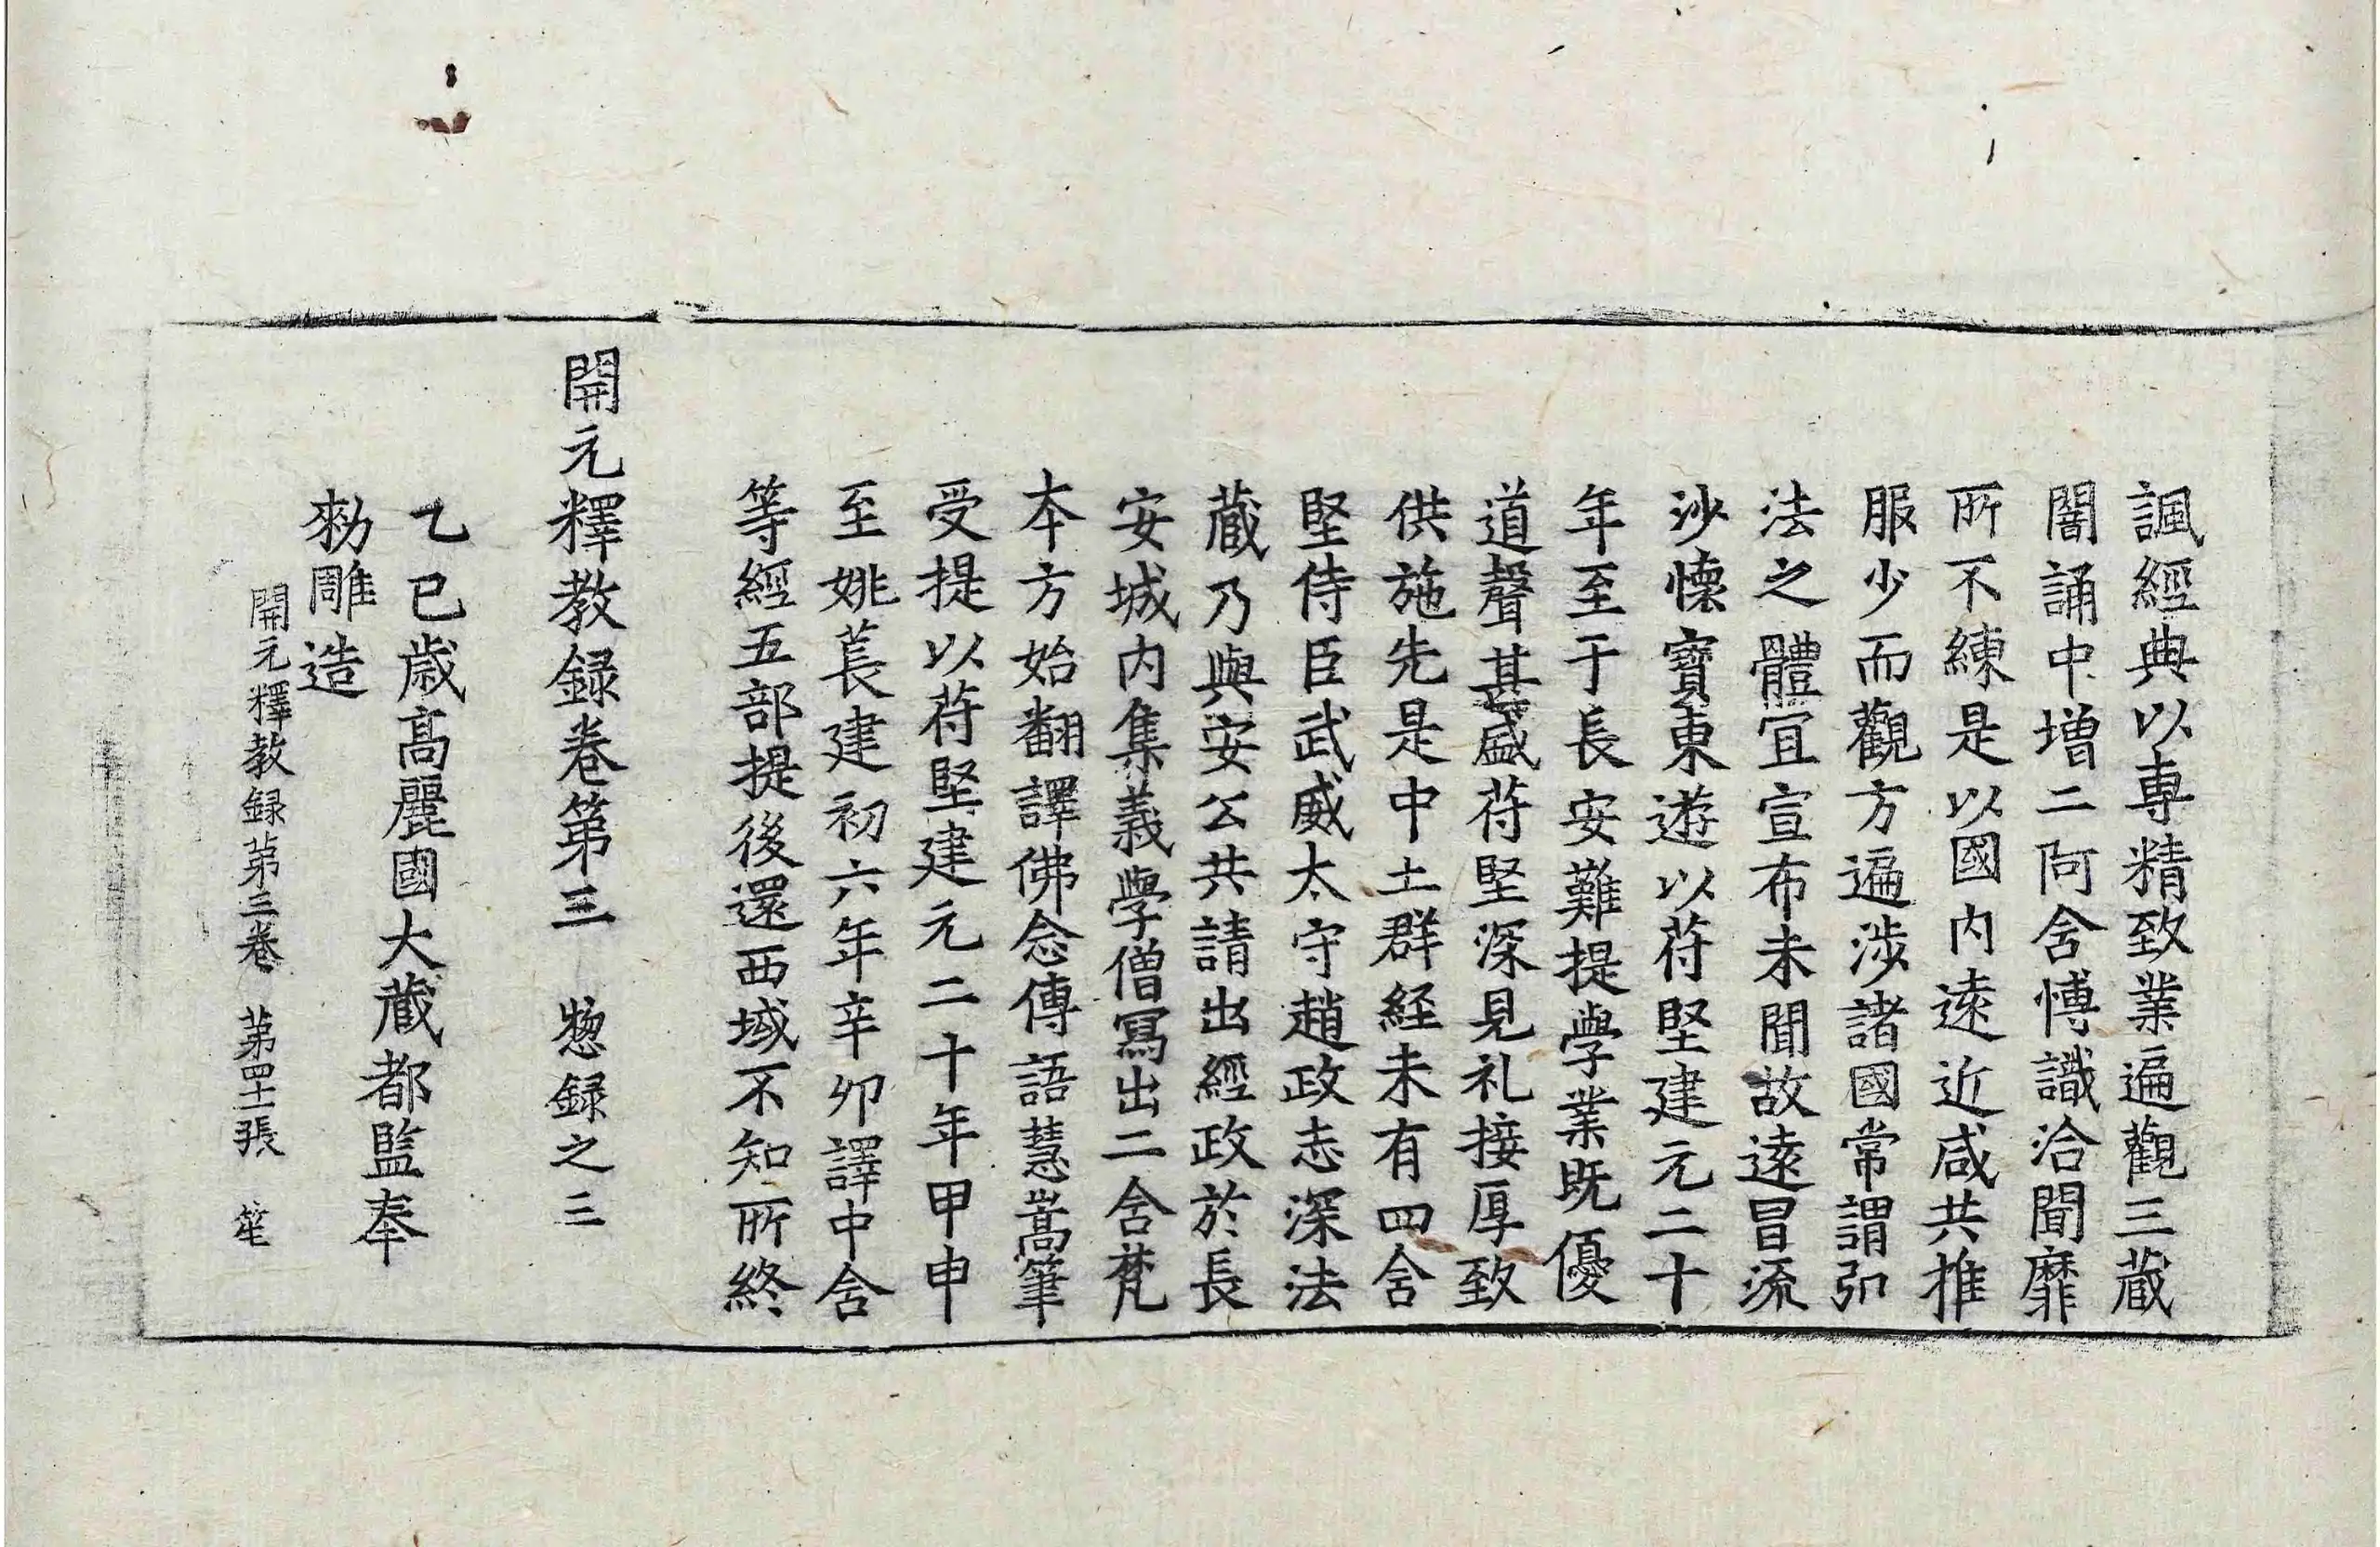 諷經典以專精致業遍觀三藏
闇誦中增二阿含博識洽聞靡
所不練是以國内遠近咸共推
服少而觀方遍涉諸國常謂弘
法之體宜宣布未聞故遠冒流
沙懷寶東遊以苻堅建元二十
年至于長安難提學業既優
道聲甚盛苻堅深見礼接厚致
供施先是中土群経未有四含
堅侍臣武威太守趙政志深法
藏乃與安公共請出經政於長
安城内集義學僧冩出二含梵
本方始翻譯佛念傳語慧嵩筆
受提以苻堅建元二十年甲申
至姚萇建初六年辛卯譯中含
等經五部提後還西域不知所終
開元釋教録卷第三 惣録之三
乙巳歳髙麗國大藏都監奉
勑雕造
開元釋教録第三卷 第四十二張 笙